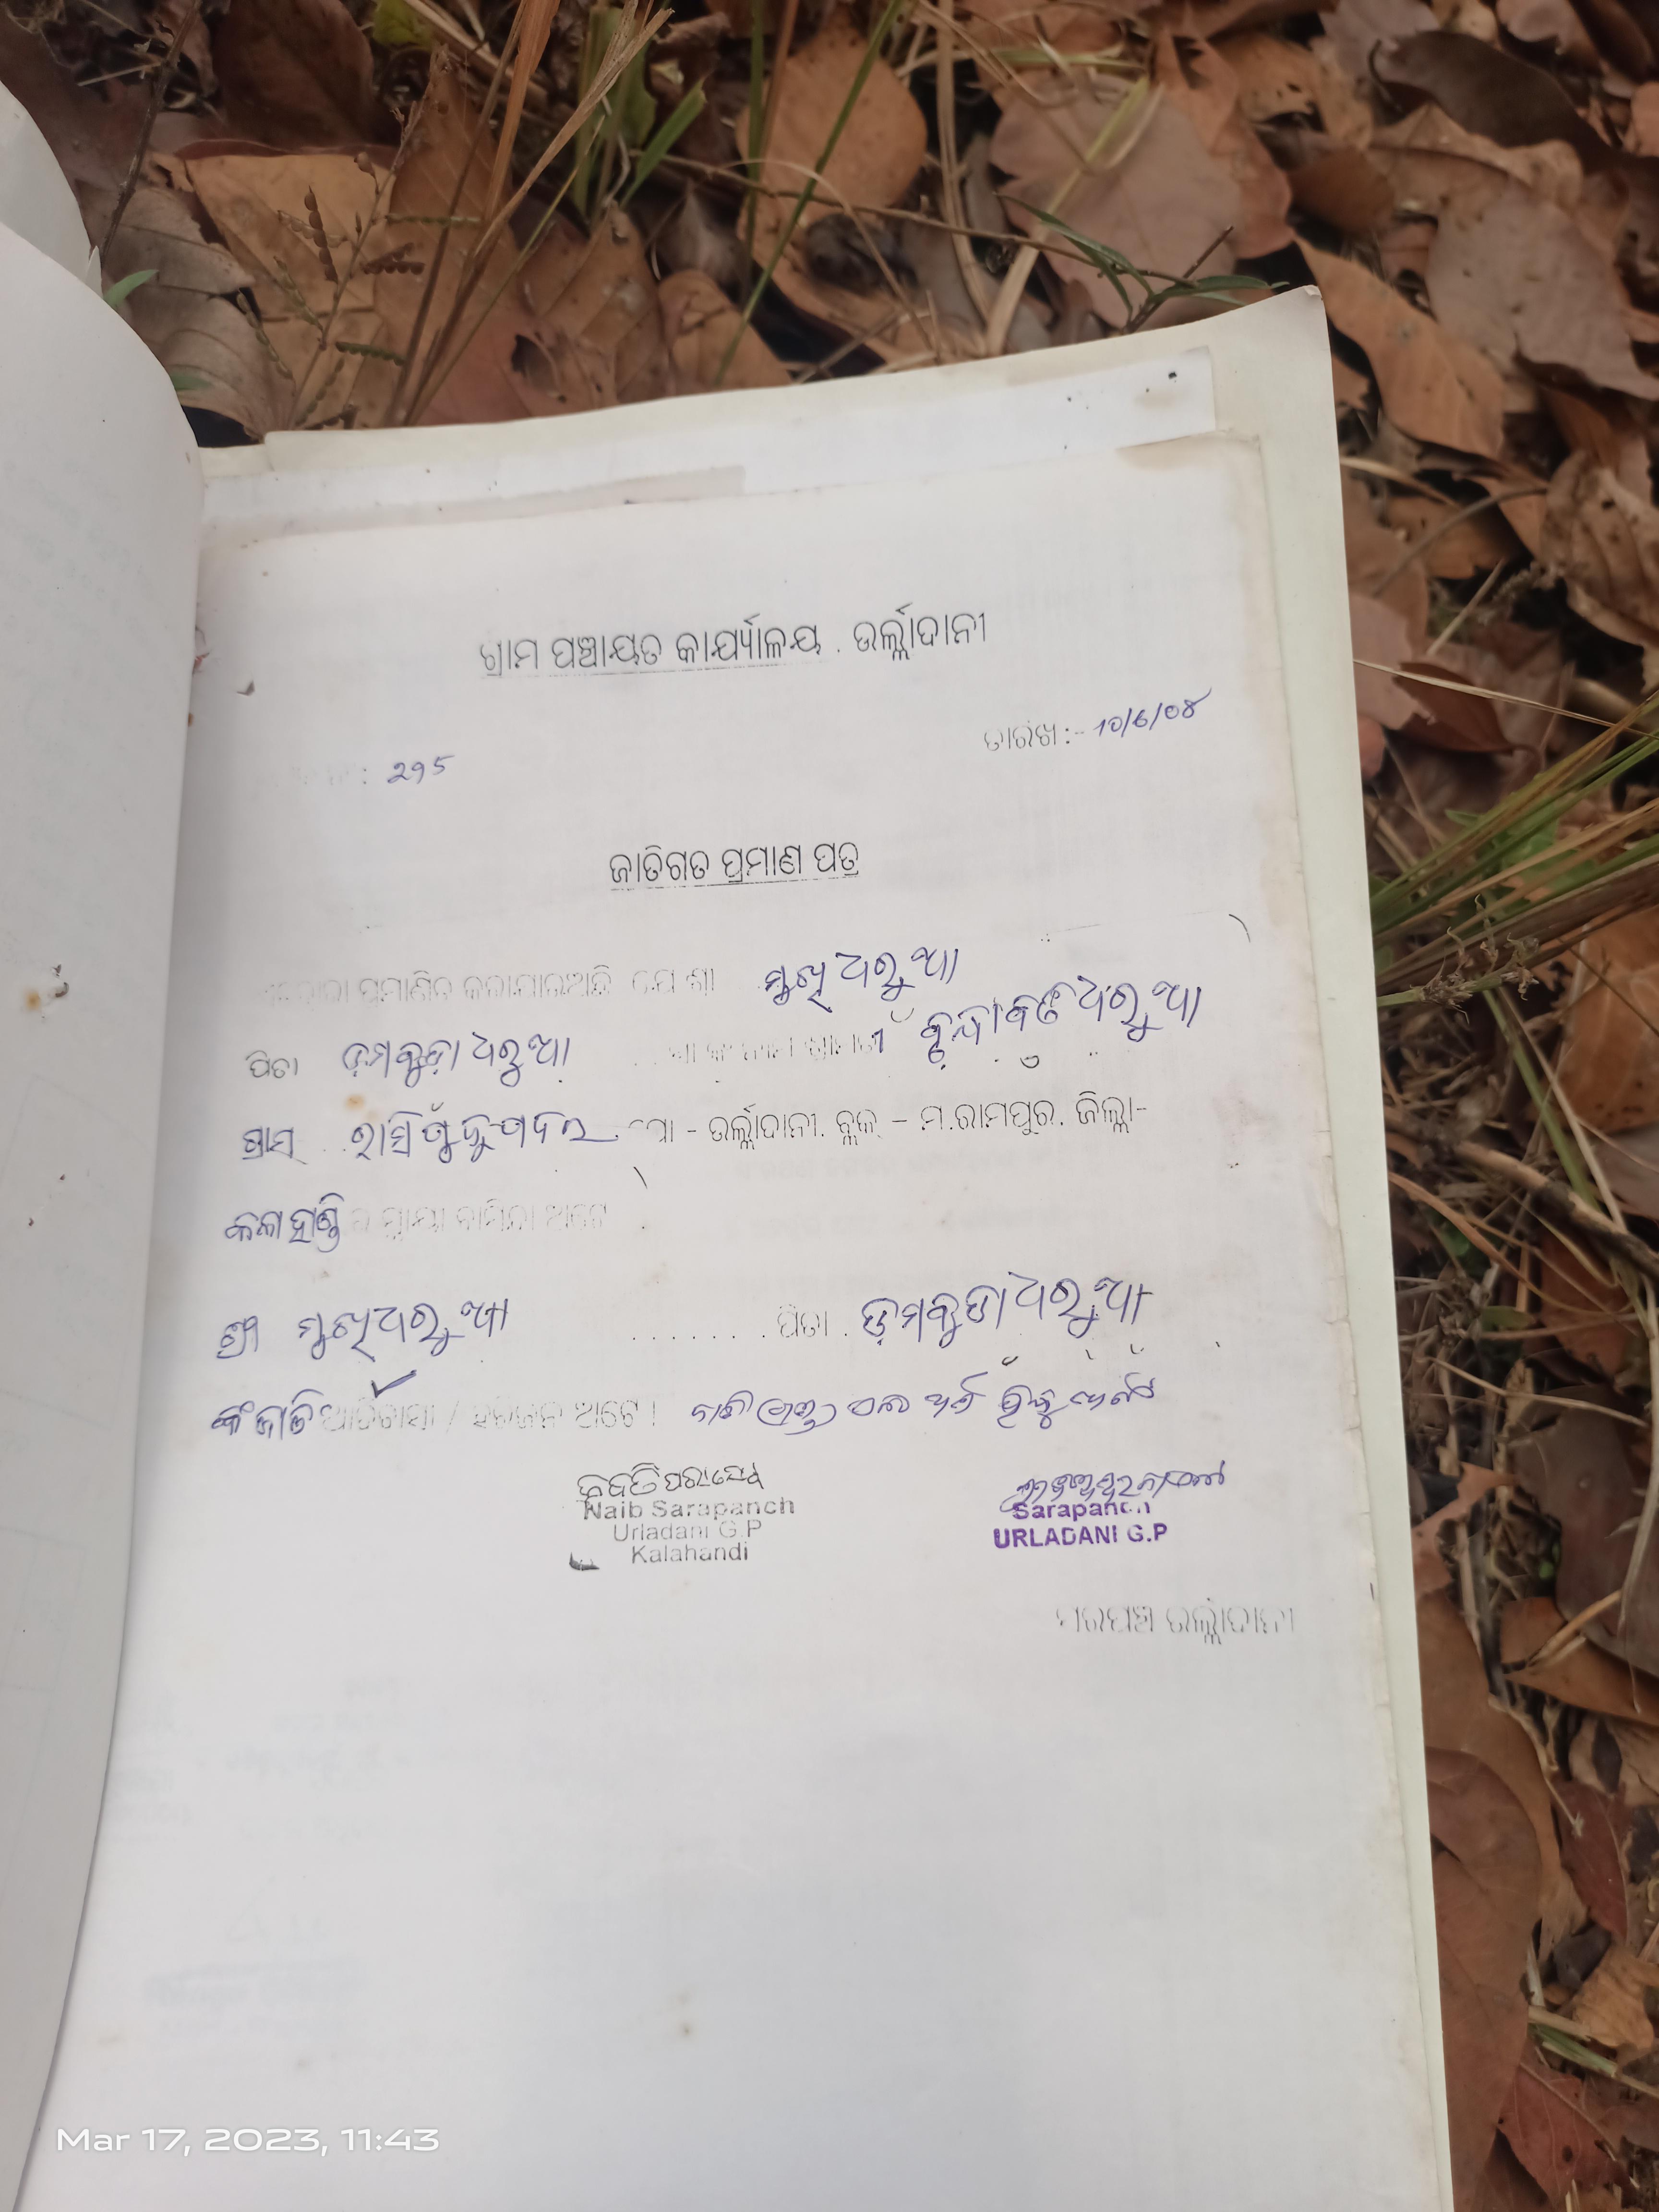 ଗ୍ରାମ ପଞ୍ଚାୟତ କାର୍ଯ୍ୟାଳୟ . ଉର୍ଲ୍ଲାଦାନୀ
ତାରିଖ :- 10/6/08
: 295
ଜାତିଗତ ପ୍ରମାଣ ପତ୍ର
ପ୍ରମାଣିତ କରାଯାଉଅଛି ଯେ ଶ୍ରୀ ମୁଖି ଧରୁଆ
ପିତା ଡମକୁଡା ଧରୁଆ ବୃନ୍ଦାବତୀ ଧରୁଆ
ଗ୍ରାମ ପୋ - ଉର୍ଲ୍ଲାଦାନୀ. ବ୍ଲକ୍ – ମ.ରାମପୁର. ଜିଲ୍ଲା-
କଳାହାଣ୍ଡି ର ସ୍ଥାୟୀ ବାସିନ୍ଦା ଅଟେ
ଶ୍ରୀ ମୁଖି ଧରୁଆ . . . . . . . ପିତା . ଡମକୁଡା ଧରୁଆ
କଂ ଜାତି ଆଦିବାସୀ / ହରିଜନ ଅଟେ ।
Naib Sarapanch
Urladani G.P
Kalahandi
Sarapanch
URLADANI G.P
ସରପଞ୍ଚ ଉର୍ଲ୍ଲାଦାନୀ
Mar 17, 2023, 11:43